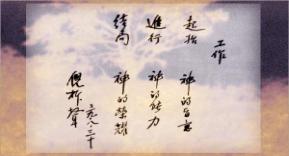 工作
起始 神的旨意
進行 神的能力
結局 神的榮耀
倪柝聲